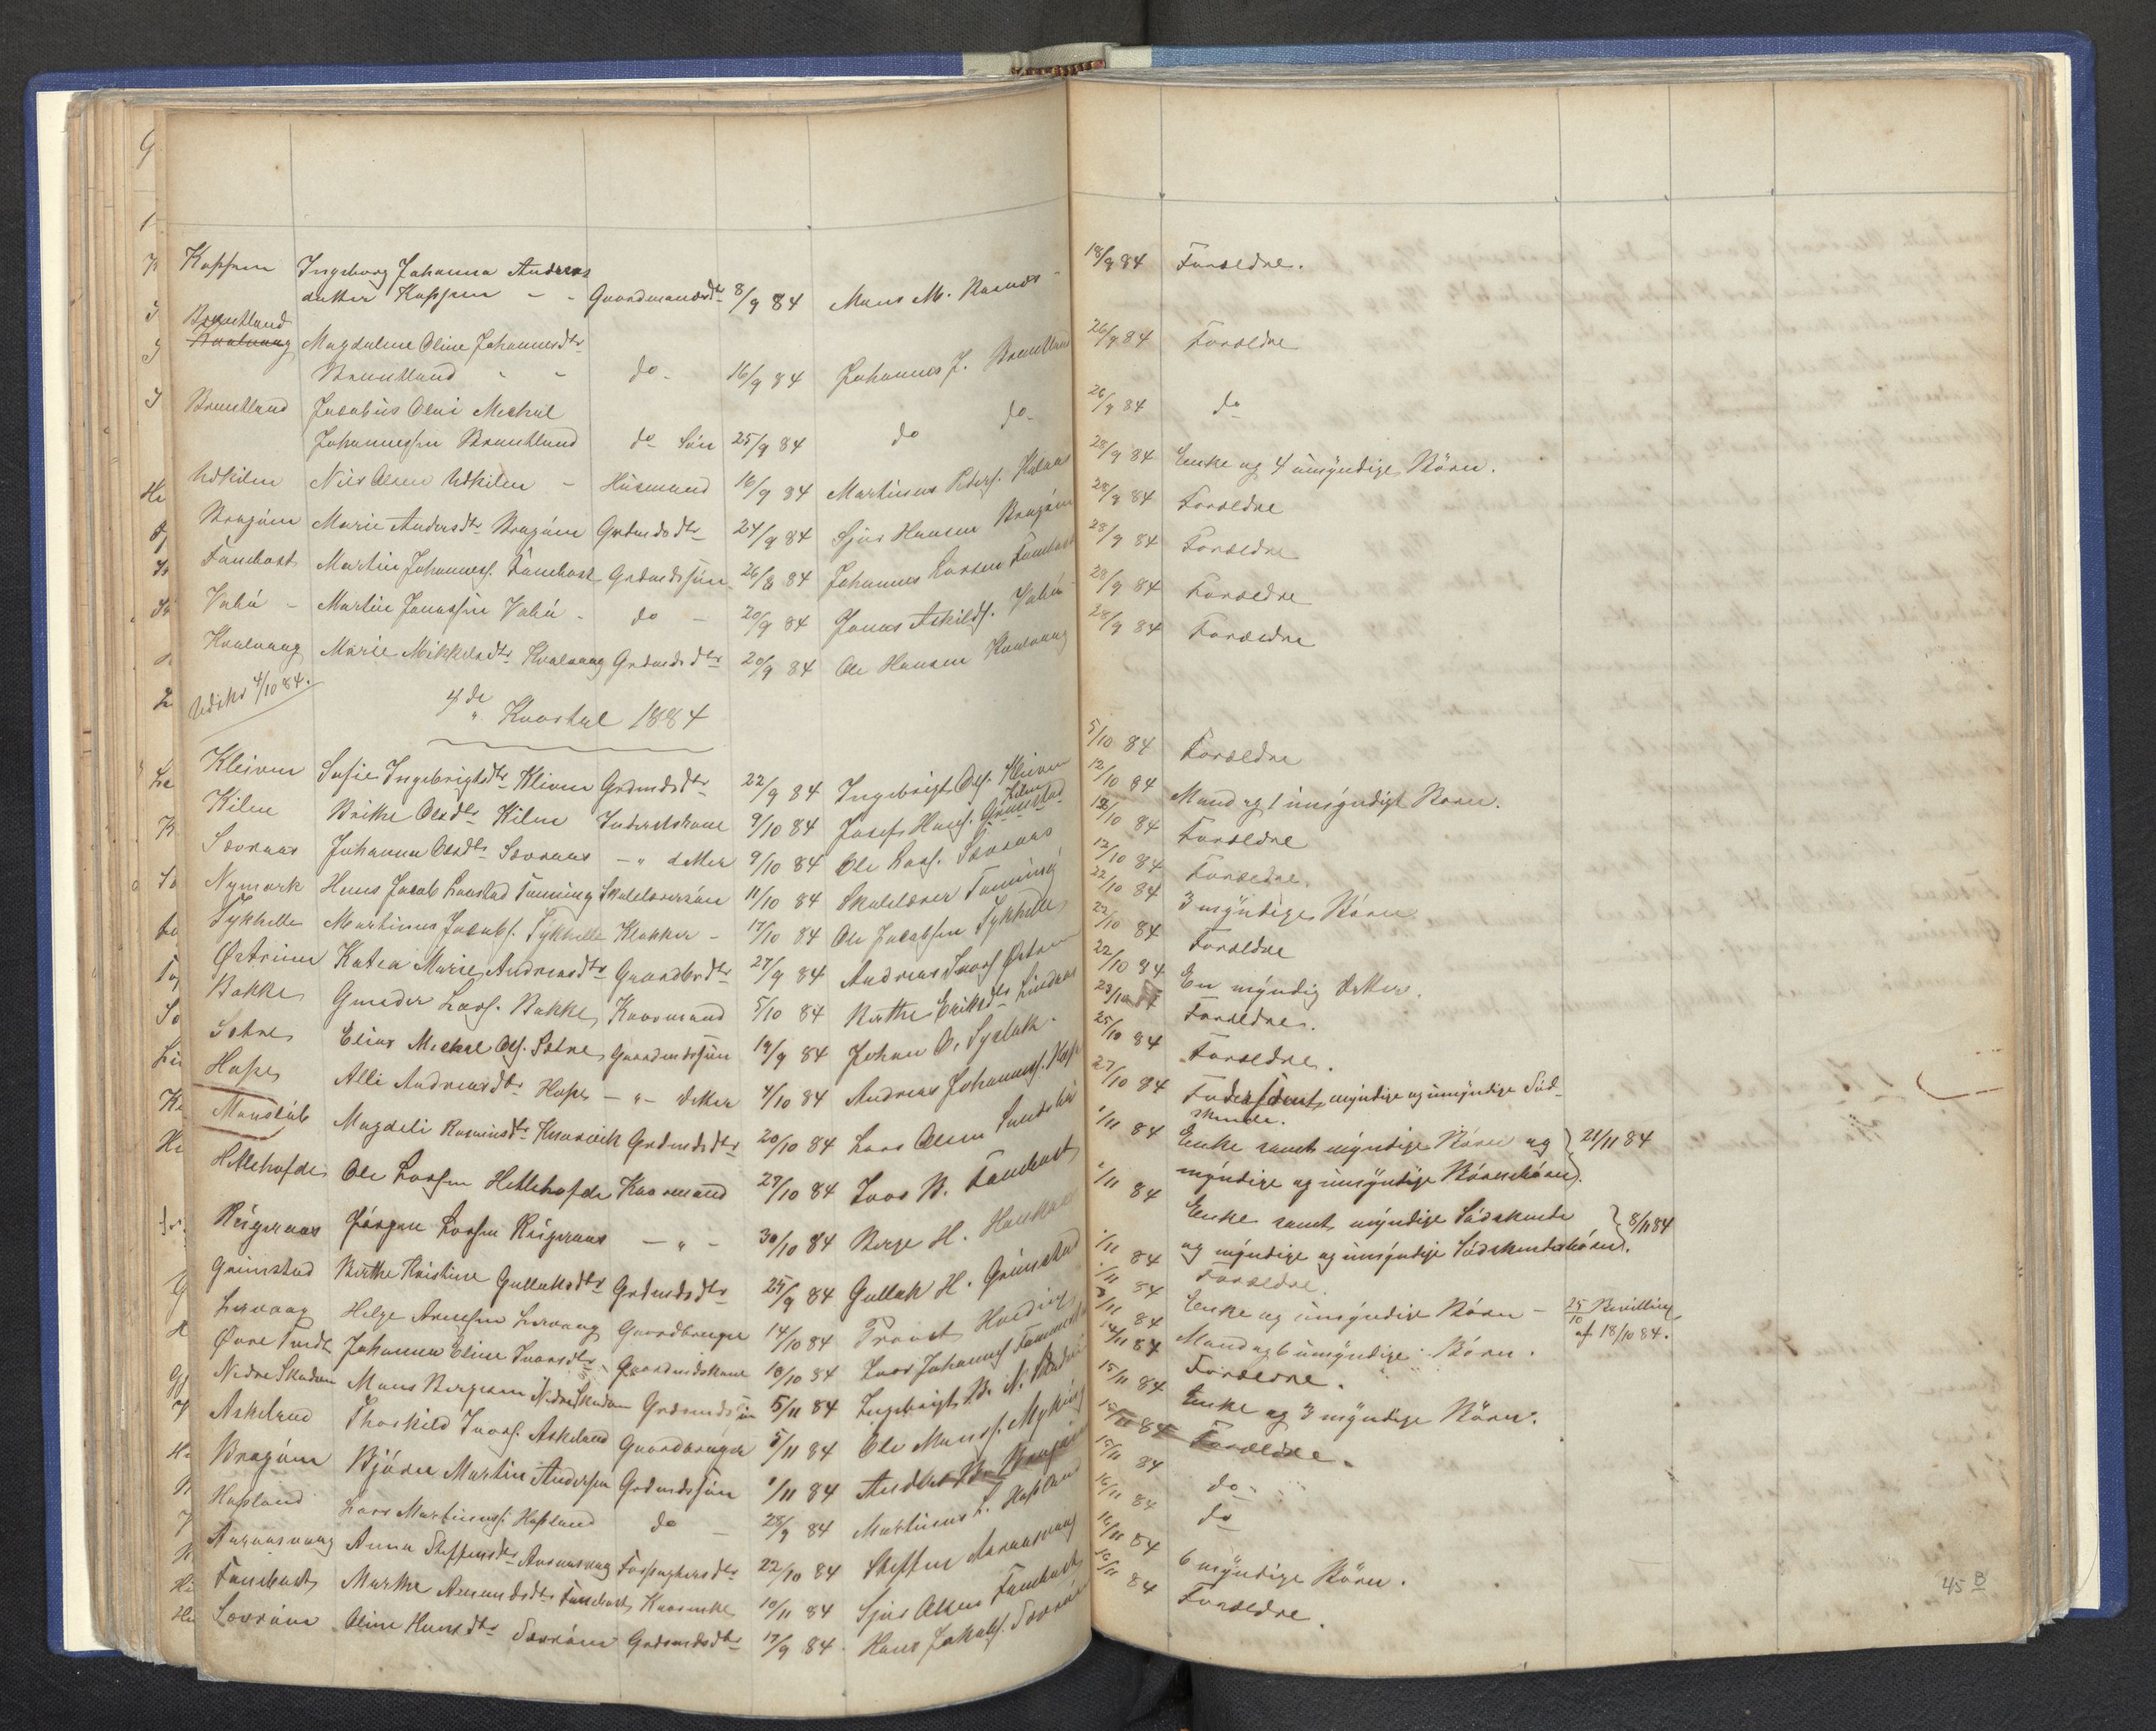 Kopperen Ingeborg Johanna Andreas
datter Koppen - - Gaardmandsdtr 8/9 84 Mons M. Ravnøs 18/9 84 Forældre.
Bruntland
Kvalvaag Magdalene Oline Johannesdtr
Bruntland - - do 16/9 84 Johannes J. Bruntland 26/9 84 Forældre
Bruntland Jacobus Olai Mechal
Johannessen Bruntland do Søn 25/9 84 do do 26/9 84 do
Udkilen Nils Olsen Udkilen - Husmand 16/9 84 Martinus Peders. Halaas 28/9 84 Enke og 4 umyndige Børn.
Bragøen Marie Andersdtr Bragøen Grdmdsdtr 24/9 84 Sjur Hansen Bragøen 28/9 84 Forældre
Fanebost Martin Johanness. Fanebost Grdmdssøn 26/8 84 Johannes Larsen Fanebost 28/9 84 Forældre
Vabø - Martin Jonassen Vabø - do - 20/9 84 Jonas Askilds. Vabø 28/9 84 Forældre
Kvalvaag Marie Mikkelsdtr Kvalvaag Grdmdsdtr 20/9 84 Ole Hansen Kvalvaag 28/9 84 Forældre
Udskr 4/10 84.
4de Kvartal 1884
Kleiven Sofie Ingebrigtsdtr Kleiven Grdmdsdtr 22/9 84 Ingebrigt Ols. Kleiven 5/10 84 Forældre
Kilen Brithe Olsdtr Kilen Inderstkone 9/10 84 Josef Hans. Grimstad Kilen 12/10 84 Mand og 1 umyndigt Barn.
Sævraas Johanna Olsdtr Sævraas - " datter 9/10 84 Ole Lars. Sævraas 12/10 84 Forældre
Nymark Hans Jacob Laustad Tanning Skolelærersøn 11/10 84 Skolelærer Tanning 12/10 84 Forældre.
Tykhelle Martinus Jacobs. Tykhelle Klokker - 17/10 84 Ole Jacobsen Tykhelle 22/10 84 3 myndige Børn
Østrem Katrea Marie Andreasdtr Gaardbrdtr 27/9 84 Andreas Ivars Østrem 22/10 84 Forældre
Bakke Gunder Lars. Bakke Kaarmand 5/10 84 Birthe Eriksdtr Lindaas 22/10 84 En myndig Datter.
Sætre Elias Mechal Ols. Sætre Gaardmdssøn 19/9 84 Johan O. Syslak. 23/10 84 Forældre.
Hope Alli Andreasdtr Hope - " - Datter 4/10 84 Andreas Johanness. Hope 25/10 84 Forældre.
Monslub Magdeli Rasmusdtr Knarvik Grdmdsdtr 20/10 84 Lars Olsen Sundsbø 27/10 84 Fader samt myndige og umyndige Sød-
skende.
Hillehofde Ole Larsen Hillehofde Kaarmand 27/10 84 Ivar B. Fanebost 1/11 84 Enke samt myndige Børn og } 21/11 84
myndige og umyndige Børnebørn
Risgeraas Jørgen Larsen Risgeraas - " - 30/10 84 Berge H. Haukaas 1/11 84 Enke samt myndige Sødskende } 8/11 84
og myndige og umyndige Sødskendebørn.
Grimstad Birthe Kristine Gullaksdtr Grdmdsdtr 25/9 84 Gullak H. Grimstad 1/11 84 Forældre.
Lervaag Helge Arnesen Lervaag Gaardbruger 14/10 84 Provst Harding 1/11 84 Enke og umyndige Børn - 25/10 Bevilling
af 18/10 84.
Øvre Tvedt Johanna Eline Ivarsdtr Gaardmdskone 18/10 84 Ivar Johannes 8/11 84 Mand og 6 umyndige Børn.
Nedre Skudem Mons Bergesen Nedre Skudem Grdmandssøn 5/11 84 Ingebrigt B. N. Skudem 14/11 84 Forældre.
Askeland Thorkild Ivars. Askeland Gaardbruger 5/11 84 Ole Monss. Myking 15/11 84 Enke og 3 myndige Børn.
Bragøen Bjørn Martin Andersen Grdmdssøn 1/11 84 Anders B. Bragøen 15/11 84 Forældre.
Hopland Lars Martinuss. Hopland do - 28/9 84 Martinus L. Hopland 15/11 84 do
Aaraasvaag Anna Steffensdtr Aaraasvaag Forpagtersdtr 22/10 84 Steffen Aaraasvaag 16/11 84 do
Fanebost Marthe Amundsdtr Fanebost Kaarenke 10/11 84 Sjur Olsen Fanebost 16/11 84 6 myndige Børn.
Sævrøen Oline Hansdtr Sævrøen Grdmdsdtr 17/9 84 Hans Jakobs. Sævrøen 16/11 84 Forældre.
45 B